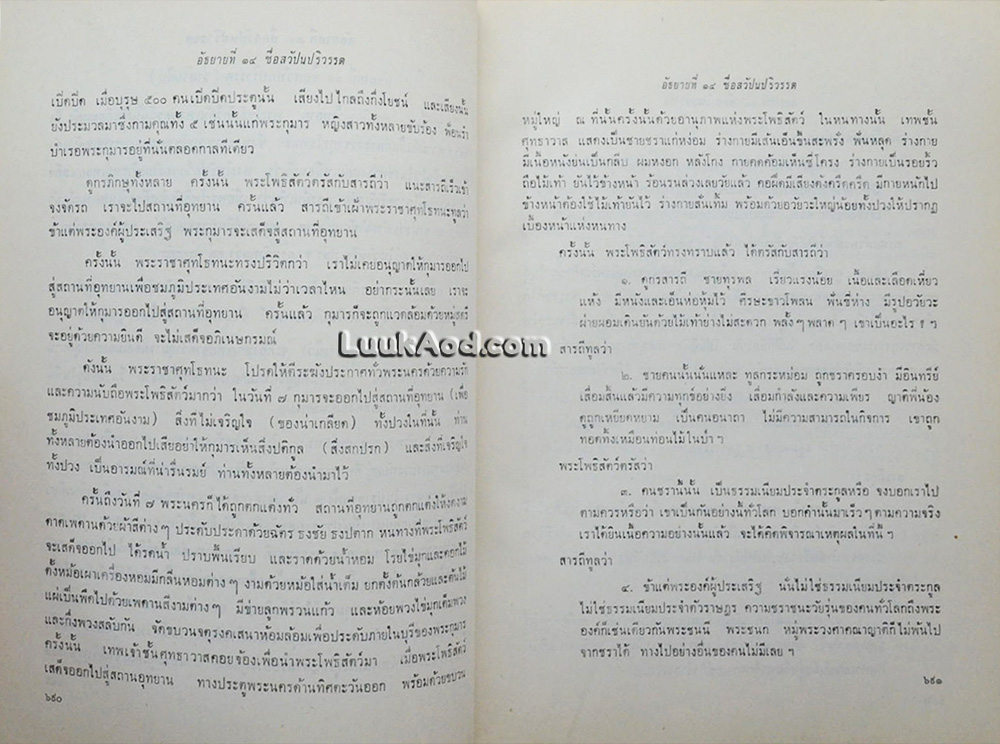 อัธยายที่ ๑๔ ชื่อสวัปนปริวรรต
เปิดปิด เมื่อบุรุษ ๕๐๐ คนเปิดปิดประตูนั้น เสียงไปไกลถึงกึ่งโยชน์ และเสียงนั้น
ยังประมวลมาซึ่งกามคุณทั้ง ๕ เช่นนั้นแก่พระกุมาร หญิงสาวทั้งหลายขับร้อง ฟ้อนรำ
บำเรอพระกุมารอยู่ที่นั่นตลอดกาลทีเดียว
ดูกรภิกษุทั้งหลาย ครั้งนั้น พระโพธิสัตว์ตรัสกับสารถีว่า แนะสารถีเร็วเข้า
จงจัดรถ เราจะไปสถานที่อุทยาน ครั้นแล้ว สารถีเข้าเฝ้าพระราชาศุทโธทนะทูลว่า
ข้าแต่พระองค์ผู้ประเสริฐ พระกุมารจะเสด็จสู่สถานที่อุทยาน
ครั้งนั้น พระราชาศุทโธทนะทรงปริวิตกว่า เราไม่เคยอนุญาตให้กุมารออกไป
สู่สถานที่อุทยานเพื่อชมภูมิประเทศอันงามไม่ว่าเวลาไหน อย่ากระนั้นเลย เราจะ
อนุญาตให้กุมารออกไปสู่สถานที่อุทยาน ครั้นแล้ว กุมารก็จะถูกแวดล้อมด้วยหมู่สตรี
จะอยู่ด้วยความยินดี จะไม่เสด็จอภิเนษกรมณ์
ดังนั้น พระราชาศุทโธทนะ โปรดให้ตีระฆังประกาศทั่วพระนครด้วยความรัก
และความนับถือพระโพธิสัตว์มากว่า ในวันที่ ๗ กุมารจะออกไปสู่สถานที่อุทยาน (เพื่อ
ชมภูมิประเทศอันงาม) สิ่งที่ไม่เจริญใจ (ของน่าเกลียด) ทั้งปวงในที่นั้น ท่าน
ทั้งหลายต้องนำออกไปเสียอย่าให้กุมารเห็นสิ่งปติกูล (สิ่งสกปรก) และสิ่งที่เจริญใจ
ทั้งปวง เป็นอารมณ์ที่น่ารื่นรมย์ ท่านทั้งหลายต้องนำมาไว้
ครั้นถึงวันที่ ๗ พระนครก็ได้ถูกตกแต่งทั่ว สถานที่อุทยานถูกตกแต่งให้งดงาม
ดาดเพดานด้วยผ้าสีต่างๆ ประดับประดาด้วยฉัตร ธงชัย ธงปตาก หนทางที่พระโพธิสัตว์
จะเสด็จออกไป ได้รดน้ำ ปราบพื้นเรียบ และราดด้วยน้ำหอม โรยไข่มุกและดอกไม้
ตั้งหม้อเผาเครื่องหอมมีกลิ่นหอมต่างๆ งามด้วยหม้อใส่น้ำเต็ม ยกตั้งต้นกล้วยและต้นไม้
แผ่เป็นพืดไปด้วยเพดานสีงามต่างๆ มีข่ายลูกพรวนแก้ว และห้อยพวงไข่มุกเต็มพวง
และกึ่งพวงสลับกัน จัดขบวนจตุรงคเสนาห้อมล้อมเพื่อประดับภายในบุรีของพระกุมาร
ครั้งนั้น เทพเจ้าชั้นศุทธาวาสคอยจ้องเพื่อนำพระโพธิสัตว์มา เมื่อพระโพธิสัตว์
เสด็จออกไปสู่สถานอุทยาน ทางประตูพระนครด้านทิศตะวันออก พร้อมด้วยขบวน
๖๙๐
อัธยายที่ ๑๔ ชื่อสวัปนปริวรรต
หมู่ใหญ่ ณ ที่นั้นครั้งนั้นด้วยอานุภาพแห่งพระโพธิสัตว์ ในหนทางนั้น เทพชั้น
ศุทธาวาส แสดงเป็นชายชราแก่หง่อม ร่างกายมีเส้นเอ็นขึ้นสะพรั่ง ฟันหลุด ร่างกาย
มีเนื้อหนังย่นเป็นกลีบ ผมหงอก หลังโกง กายคดค้อมเห็นซี่โครง ร่างกายเป็นรอยริ้ว
ถือไม้เท้า ยันไว้ข้างหน้า ร้อนรนล่วงเลยวัยแล้ว คอฝืดมีเสียงดังครืดครืด มีกายหนักไป
ข้างหน้าต้องใช้ไม้เท้ายันไว้ ร่างกายสั่นเทิ้ม พร้อมด้วยอวัยวะใหญ่น้อยทั้งปวงให้ปรากฏ
เบื้องหน้าแห่งหนทาง
ครั้งนั้น พระโพธิสัตว์ทรงทราบแล้ว ได้ตรัสกับสารถีว่า
๑. ดูกรสารถี ชายทุรพล เรี่ยวแรงน้อย เนื้อและเลือดเหี่ยว
แห้ง มีหนังและเอ็นห่อหุ้มไว้ ศีรษะขาวโพลน ฟันซี่ห่าง มีรูปอวัยวะ
ฝ่ายผอมเดินยันด้วยไม้เท้าย่างไม่สะดวก พลั้งๆ พลาดๆ เขาเป็นอะไร ? ฯ
สารถีทูลว่า
๒. ชายคนนั้นนั่นแหละ ทูลกระหม่อม ถูกชราครอบงำ มีอินทรีย์
เสื่อมสิ้นแล้วมีความทุกข์อย่างยิ่ง เสื่อมกำลังและความเพียร ญาติพี่น้อง
ดูถูกเหยียดหยาม เป็นคนอนาถา ไม่มีความสามารถในกิจการ เขาถูก
ทอดทิ้งเหมือนท่อนไม้ในป่า ฯ
พระโพธิสัตว์ตรัสว่า
๓. คนชรานี้นั้น เป็นธรรมเนียมประจำตระกูลหรือ จงบอกเราไป
ตามควรหรือว่า เขาเป็นกันอย่างนี้ทั่วโลก บอกคำนั้นมาเร็วๆ ตามความจริง
เราได้ยินเนื้อความอย่างนั้นแล้ว จะได้คิดพิจารณาเหตุผลในที่นี้ ฯ
สารถีทูลว่า
๔. ข้าแต่พระองค์ผู้ประเสริฐ นั่นไม่ใช่ธรรมเนียมประจำตระกูล
ไม่ใช่ธรรมเนียมประจำตัวราษฎร ความชราชนะวัยรุ่นของคนทั่วโลกถึงพระ
องค์ก็เช่นเดียวกันพระชนนี พระชนก หมู่พระวงศาคณาญาติก็ไม่พ้นไป
จากชราได้ ทางไปอย่างอื่นของคนไม่มีเลย ฯ
๖๙๑
LuukAod.com